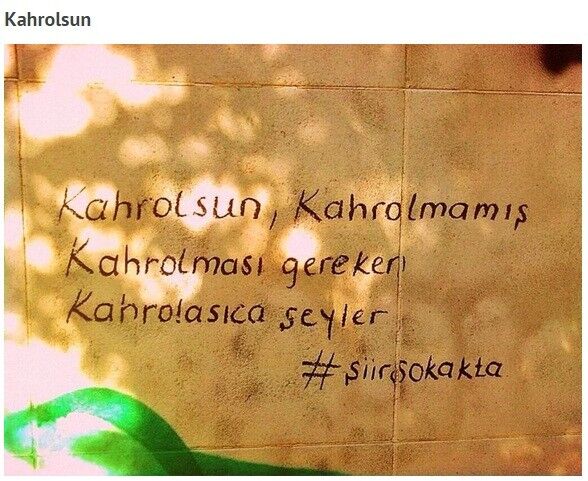 Kahrolsun
Kahrolsun, Kahrolmamış
Kahrolması gereken
Kahrolasıca şeyler
#şiirsokakta